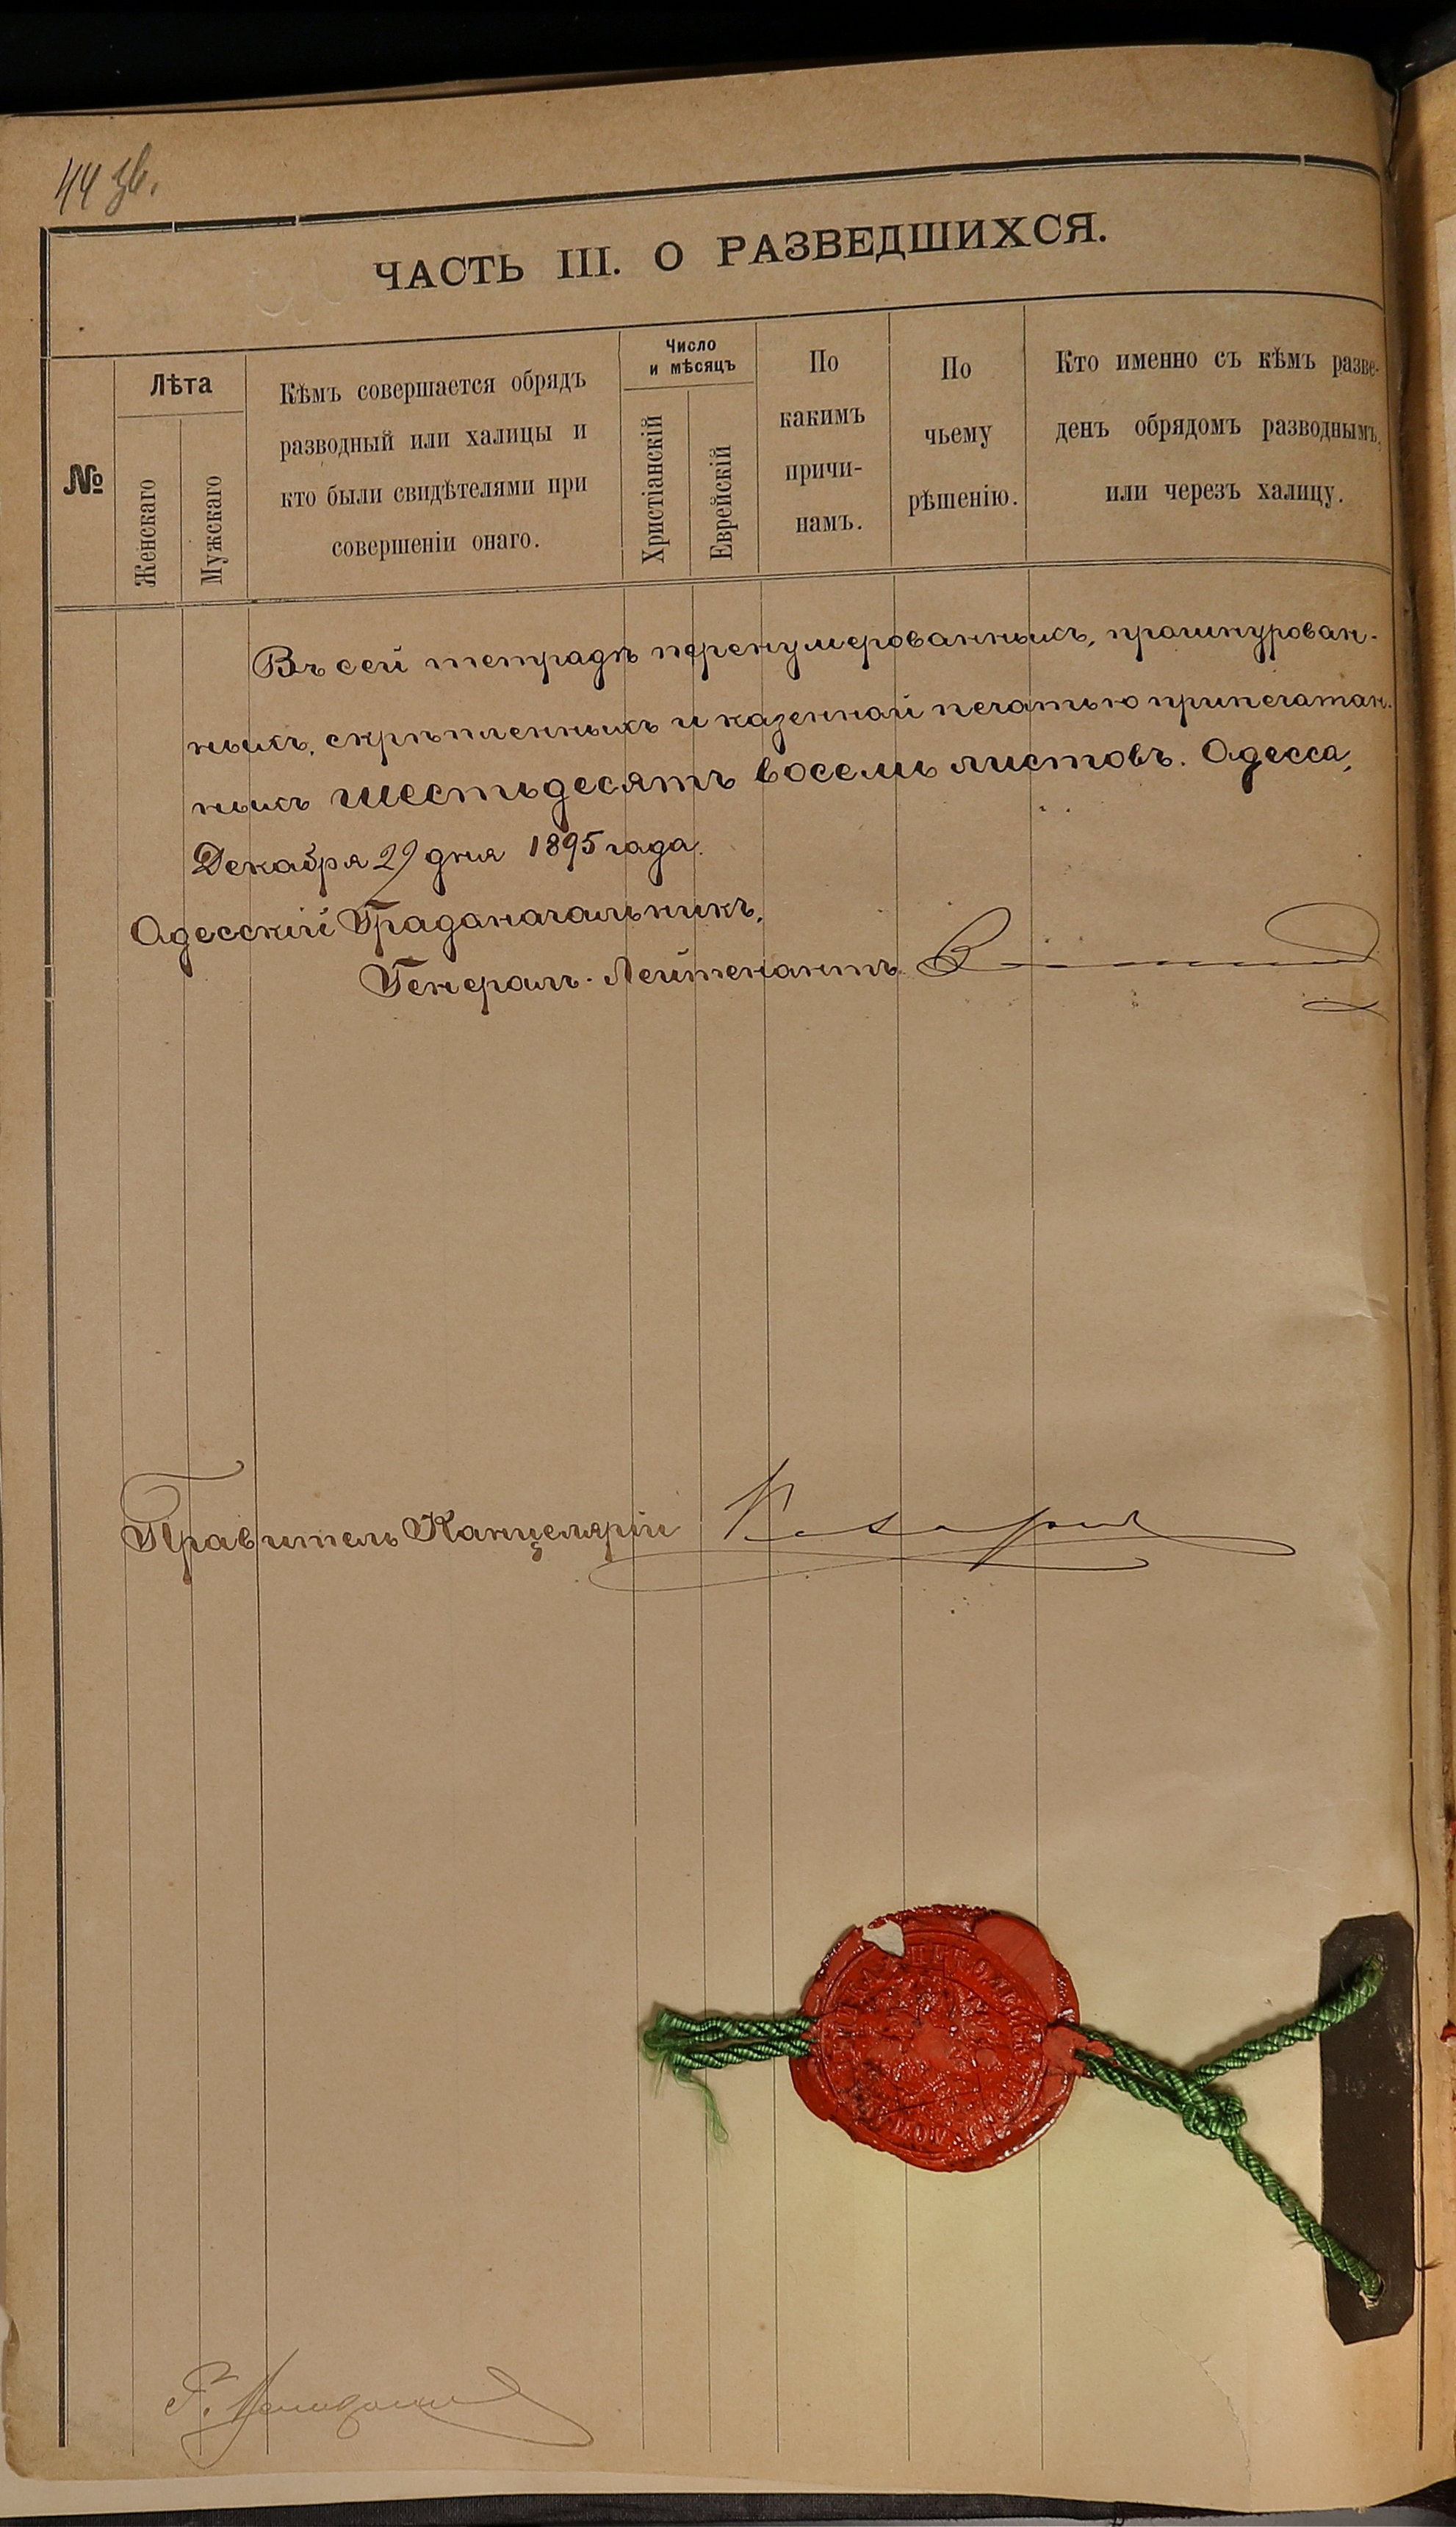 44 зв.
ЧАСТЬ III. О РАЗВЕДШИХСЯ.
№
Лѣта
Женскаго
Мужскаго
Кѣмъ совершается обрядъ
разводный или халицы и
кто были свидѣтелями при
совершеніи онаго.
Число
и мѣсяцъ
Христіанскій
Еврейскій
По
какимъ
причи-
намъ.
По
чьему
рѣшенію.
Кто именно съ кѣмъ разве-
денъ обрядомъ разводнымъ,
или черезъ халицу.
Въ сей тетрадѣ перенумерованныхъ, прошнурован-
ныхъ, скрѣпленныхъ и казенной печатью припечатан-
ныхъ шестьдесятъ восемь листовъ. Одесса,
Декабря 29 дня 1895 года.
Одесскій Градоначальникъ,
Генералъ-Лейтенантъ
Правитель Канцеляріи